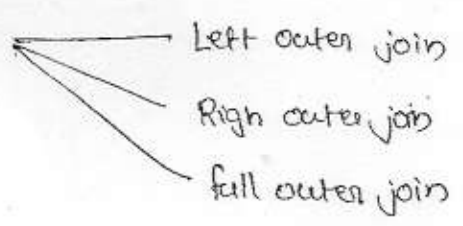 Left outer join
Righ outer join
full outer join